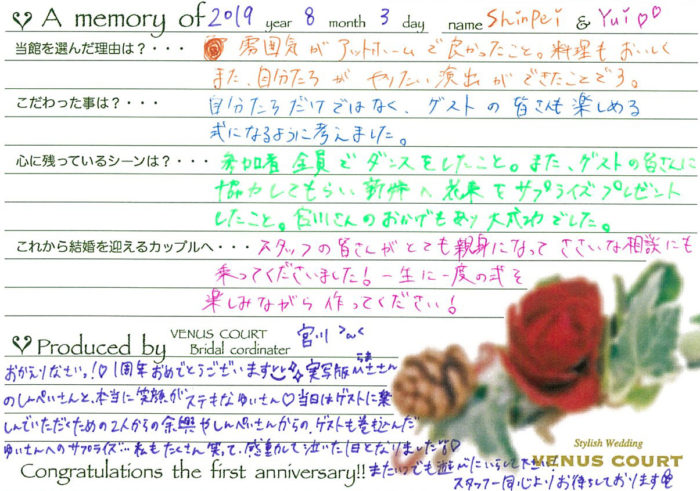 A memory of 2019 year 8 month 3 day name Shinpei & Yui♡♡
当館を選んだ理由は？・・・ 雰囲気がアットホームで良かったこと。料理もおいしく
また、自分たちがやりたい演出ができたことです。
こだわった事は？・・・ 自分たちだけではなく、ゲストの皆さんも楽しめる
式になるように考えました。
心に残っているシーンは？・・・ 参加者全員でダンスをしたこと。また、ゲストの皆さんに
協力してもらい新婦へ花束をサプライズプレゼント
したこと。宮川さんのおかげもあり大成功でした。
これから結婚を迎えるカップルへ・・・ スタッフの皆さんがとても親身になってささいな相談にも
乗ってくださいました！一生に一度の式を
楽しみながら作ってください！
Produced by VENUS COURT Bridal cordinater 宮川
おかえりなさいっ！♡1周年おめでとうございます 実写版
のしんぺいさんと、本当に笑顔がステキなゆいさん♡当日はゲストに楽
しんでいただくための2人からの余興やしんぺいさんからの、ゲストも巻き込んだ
ゆいさんへのサプライズ…私もたくさん笑って、感動して泣いた1日となりました
Congratulations the first anniversary!! またいつでも遊びにいらして下さい！
スタッフ一同心よりお待ちしております
Stylish Wedding
VENUS COURT